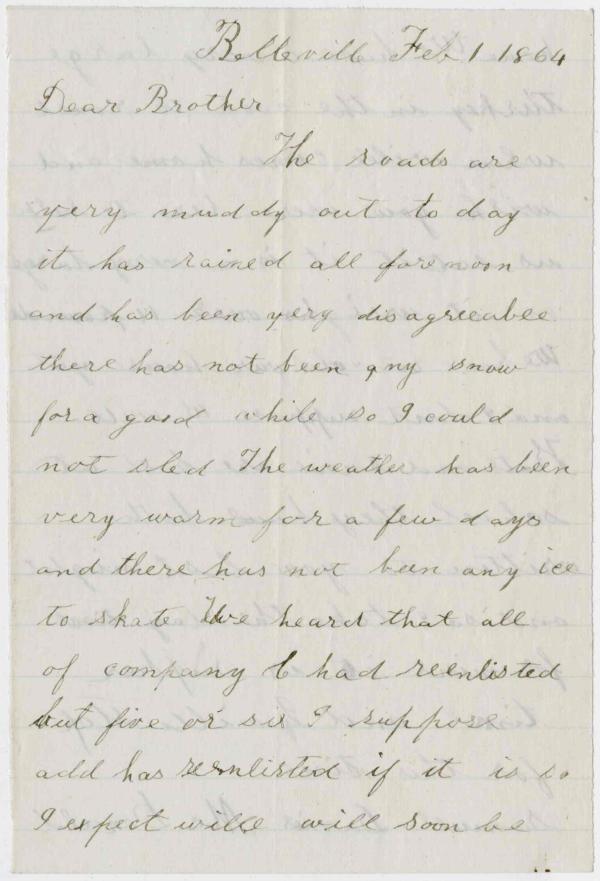 Belleville Feb 1 1864
Dear Brother
The roads are
very muddy out to day
it has rained all forenoon
and has been very disagreeabee
there has not been any snow
for a good while so I could
not sled The weather has been
very warm for a few days
and there has not been any ice
to skate We heard that all
of company C had reenlisted
but five or six I suppose
add has reenlisted if it is so
I expect wille will soon be